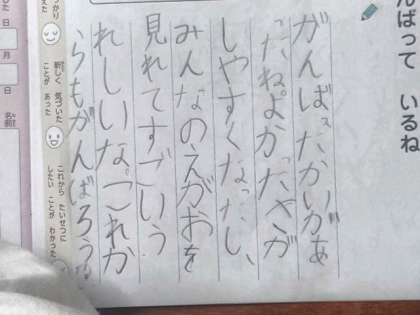 んばって いるね
がんばったかいがあ
ったね。よかったさが
しやすくなったし、
みんなのえがおを
見れてすごいう
れしいな。これか
らもがんばろうね
新しく 気づいた
ことが あった
これから たいせつに
したい ことが わかった
月
日
名前